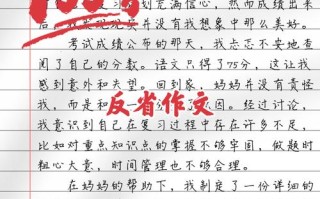 复习计划充满信心，然而成绩出来
后，我发现现实并没有我想象中那么美好。
考试成绩公布的那天，我忐忑不安地查
阅了自己的分数。语文只得了75分，这让我
感到意外和失望。回到家，妈妈并没有责怪
我，而是和我一
因。经过讨论，
反省作文
我意识到自己在复习过程中存在许多不足，
比如对重点知识点的掌握不够牢固，做题时
粗心大意，时间管理也不够合理。
在妈妈的帮助下，我制定了一份详细的